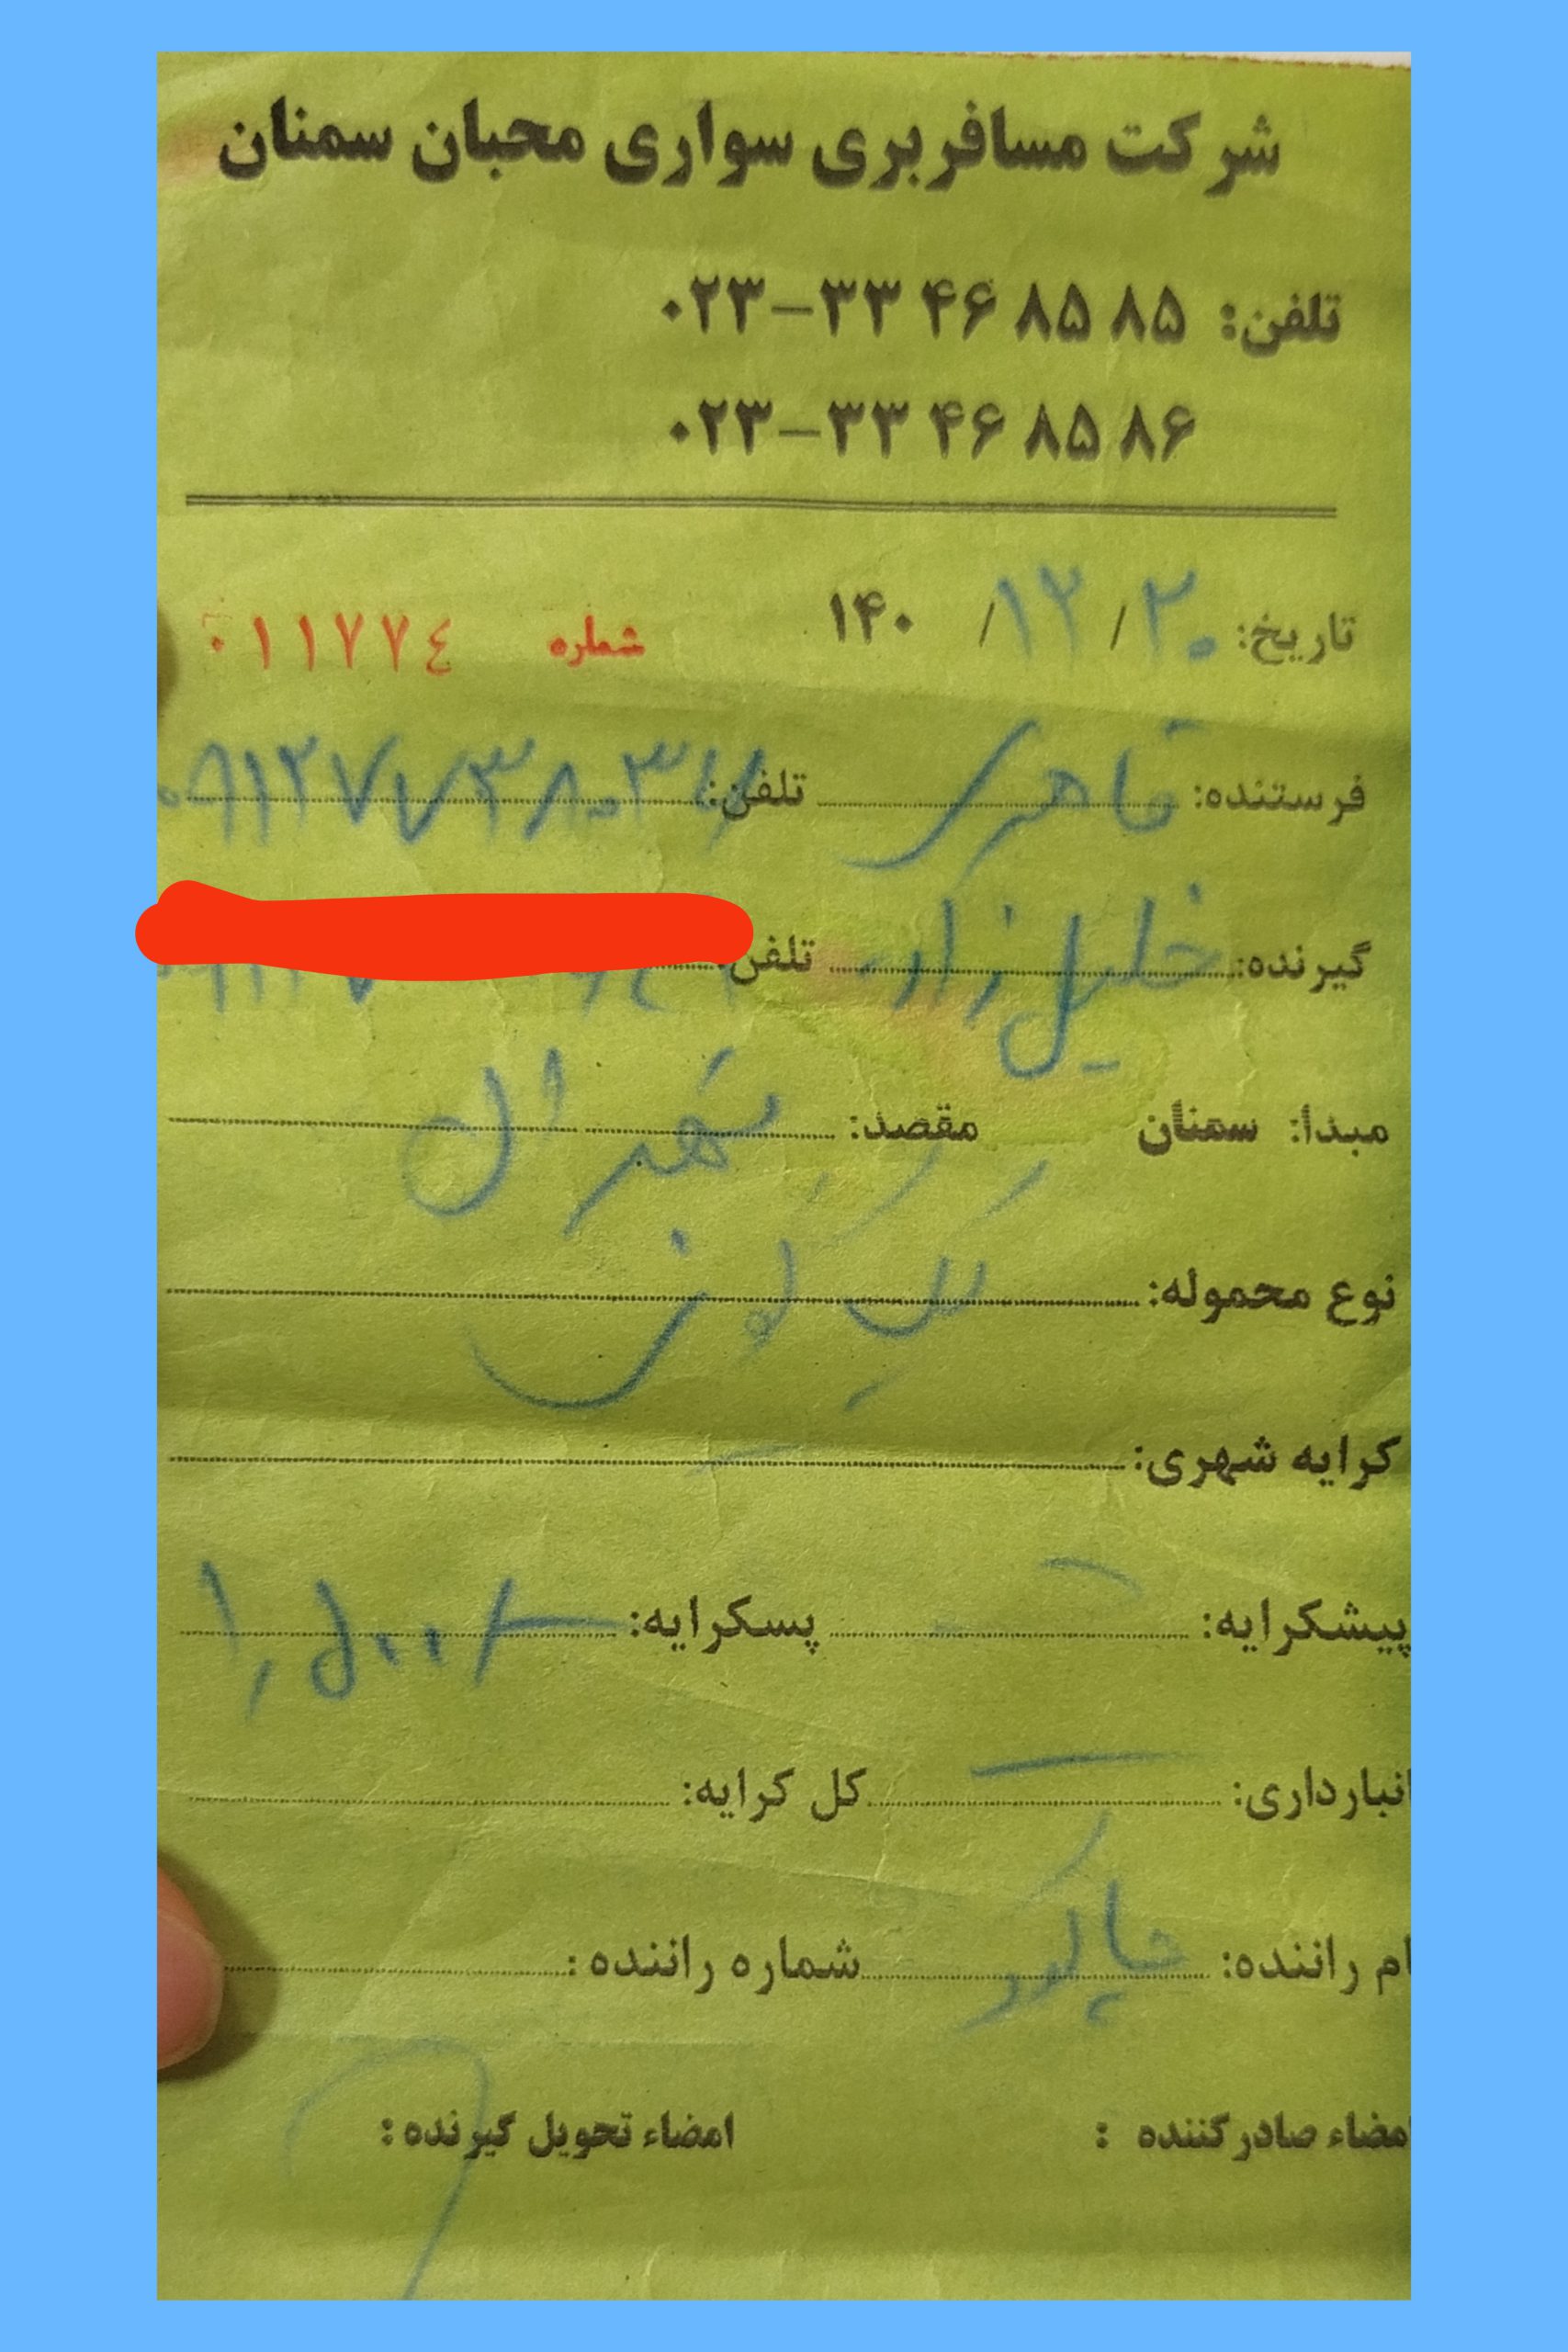 شرکت مسافربری سواری محبان سمنان
تلفن: ۰۲۳-۳۳ ۴۶ ۸۵ ۸۵
۰۲۳-۳۳ ۴۶ ۸۵ ۸۶
تاریخ: ۲۰/۱۲/ ۱۴۰ شماره ۰۱۱۷۷٤
فرستنده: تلفن:
گیرنده: خلیل زاده تلفن:
مبدا: سمنان مقصد: تهران
نوع محموله: یک کارتن
کرایه شهری:
پیشکرایه: پسکرایه:
انبارداری: کل کرایه:
ام راننده: شاکر شماره راننده:
امضاء صادر کننده : امضاء تحویل گیرنده: